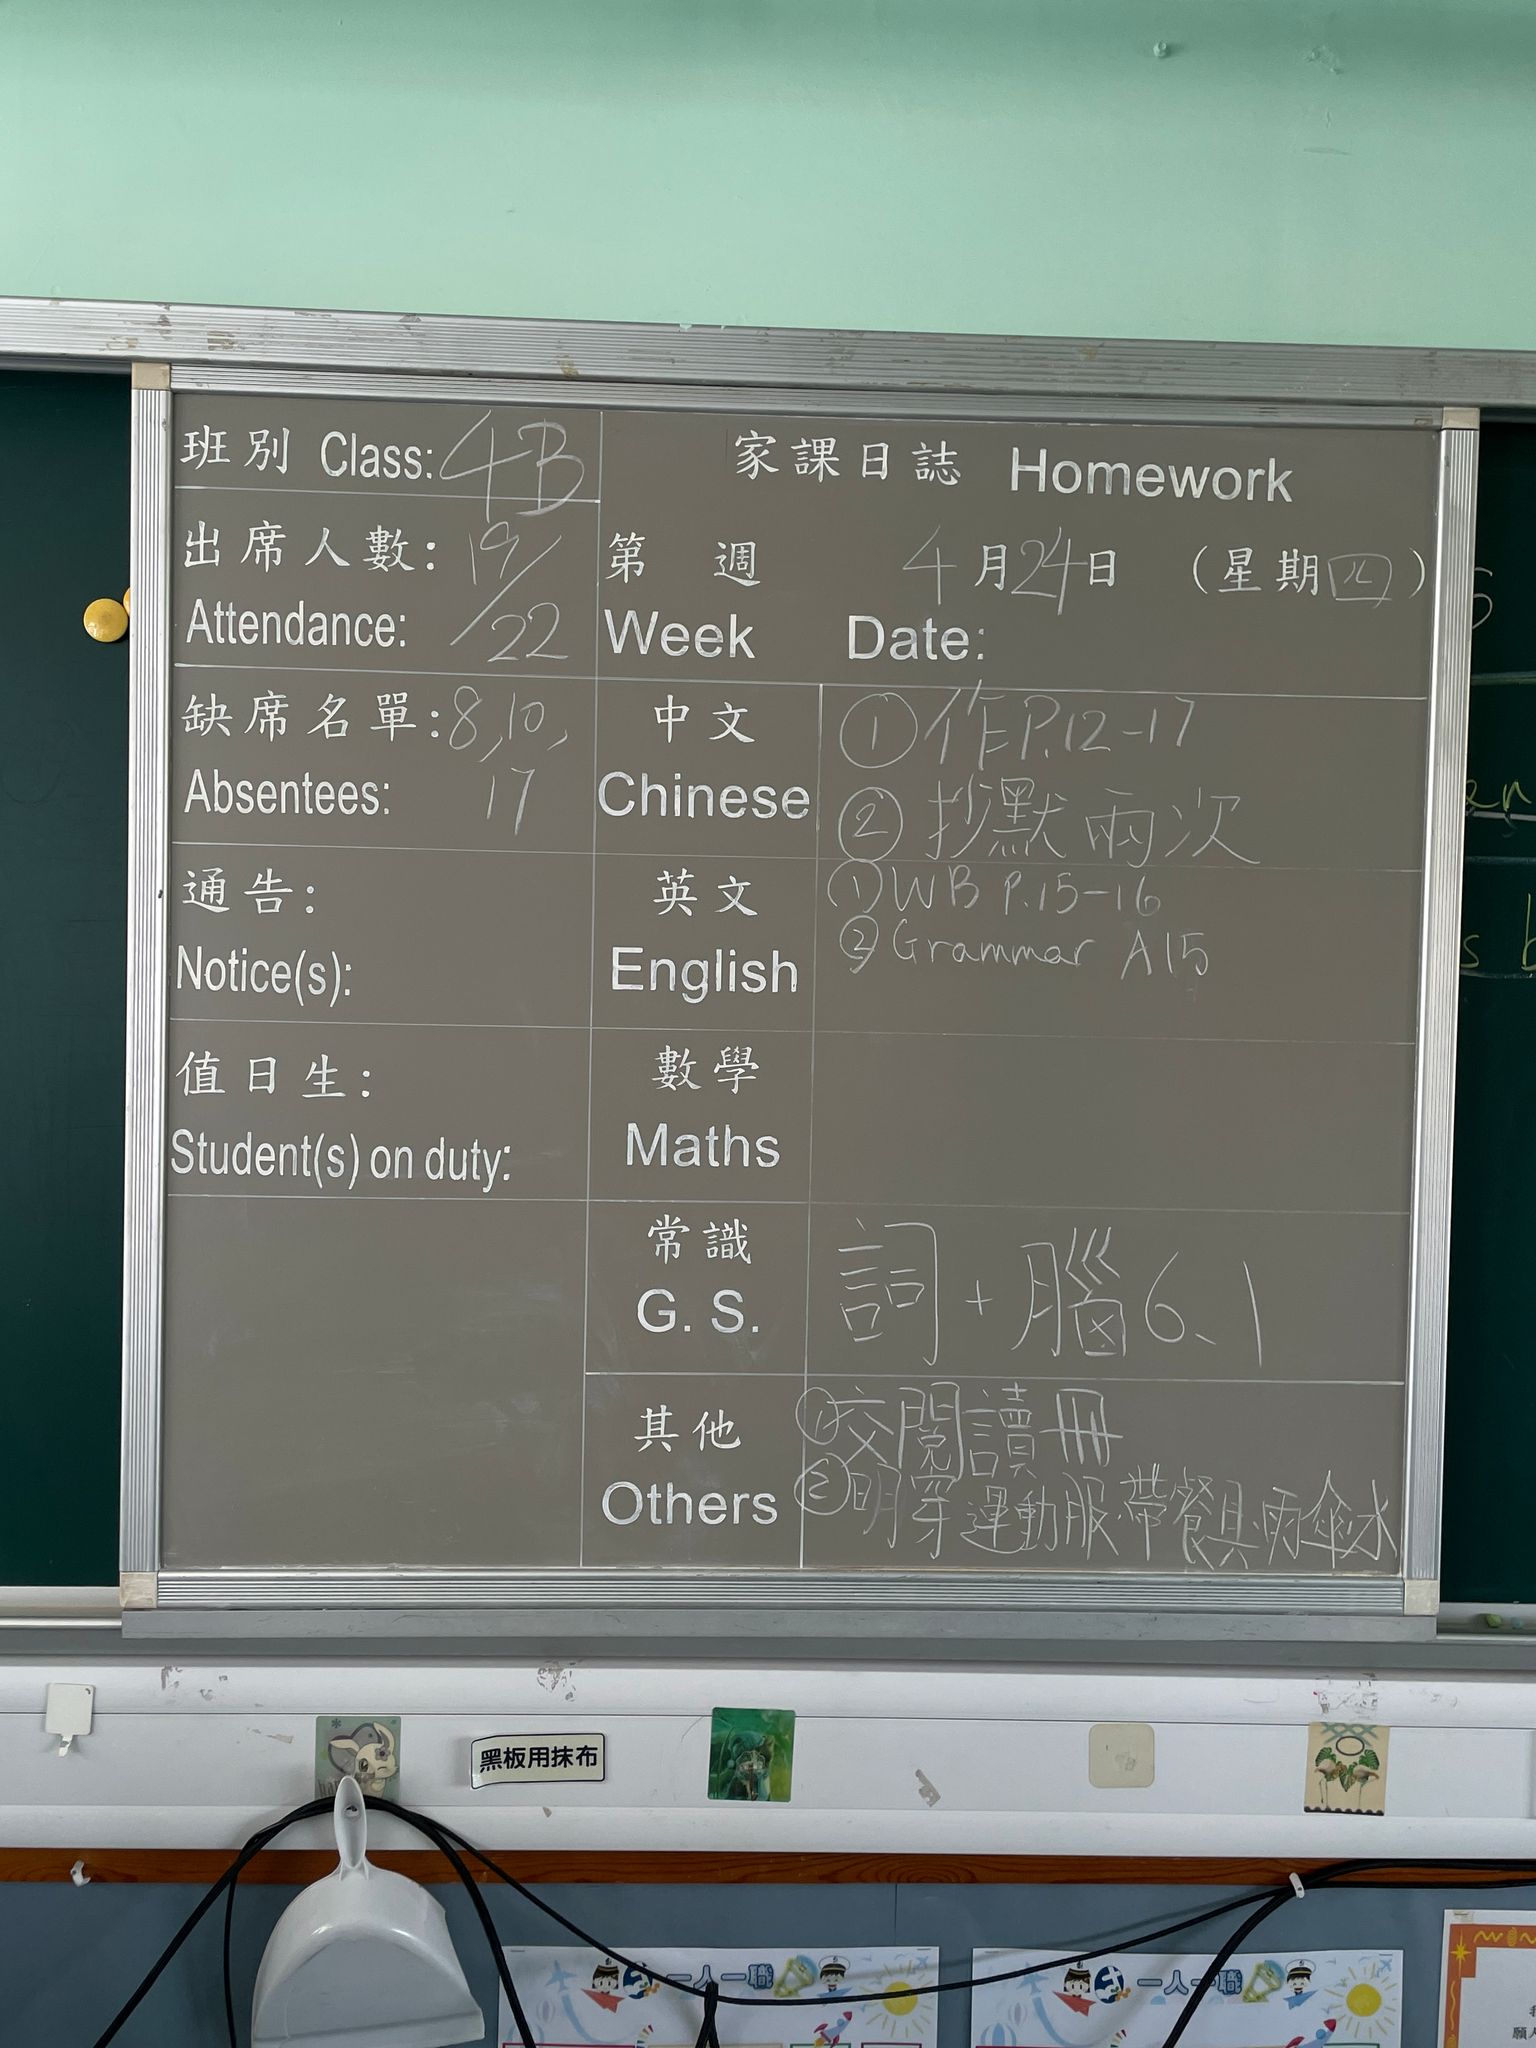 班別 Class: 4B
出席人數: 19/22
Attendance:
缺席名單: 8, 10,
Absentees: 17
通告:
Notice(s):
值日生:
Student(s) on duty:
家課日誌 Homework
第 週 4月24日 (星期四)
Week Date:
中文 ①作P.12-17
Chinese ②抄默兩次
英文 ①WB P.15-16
English ②Grammar A15
數學
Maths
常識 詞+腦6.1
G. S.
其他 ①交閱讀冊
Others ②明穿運動服·帶餐具·雨傘·水
黑板用抹布
一人一職
一人一職